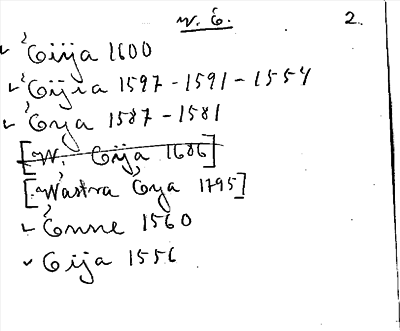 v. E. 2.
Eija 1600
Eijia 1597 - 1591 - 1554
Eya 1587 - 1581
[W. Eija 1686]
[Wästra Eya 1795]
Enne 1560
Eija 1556